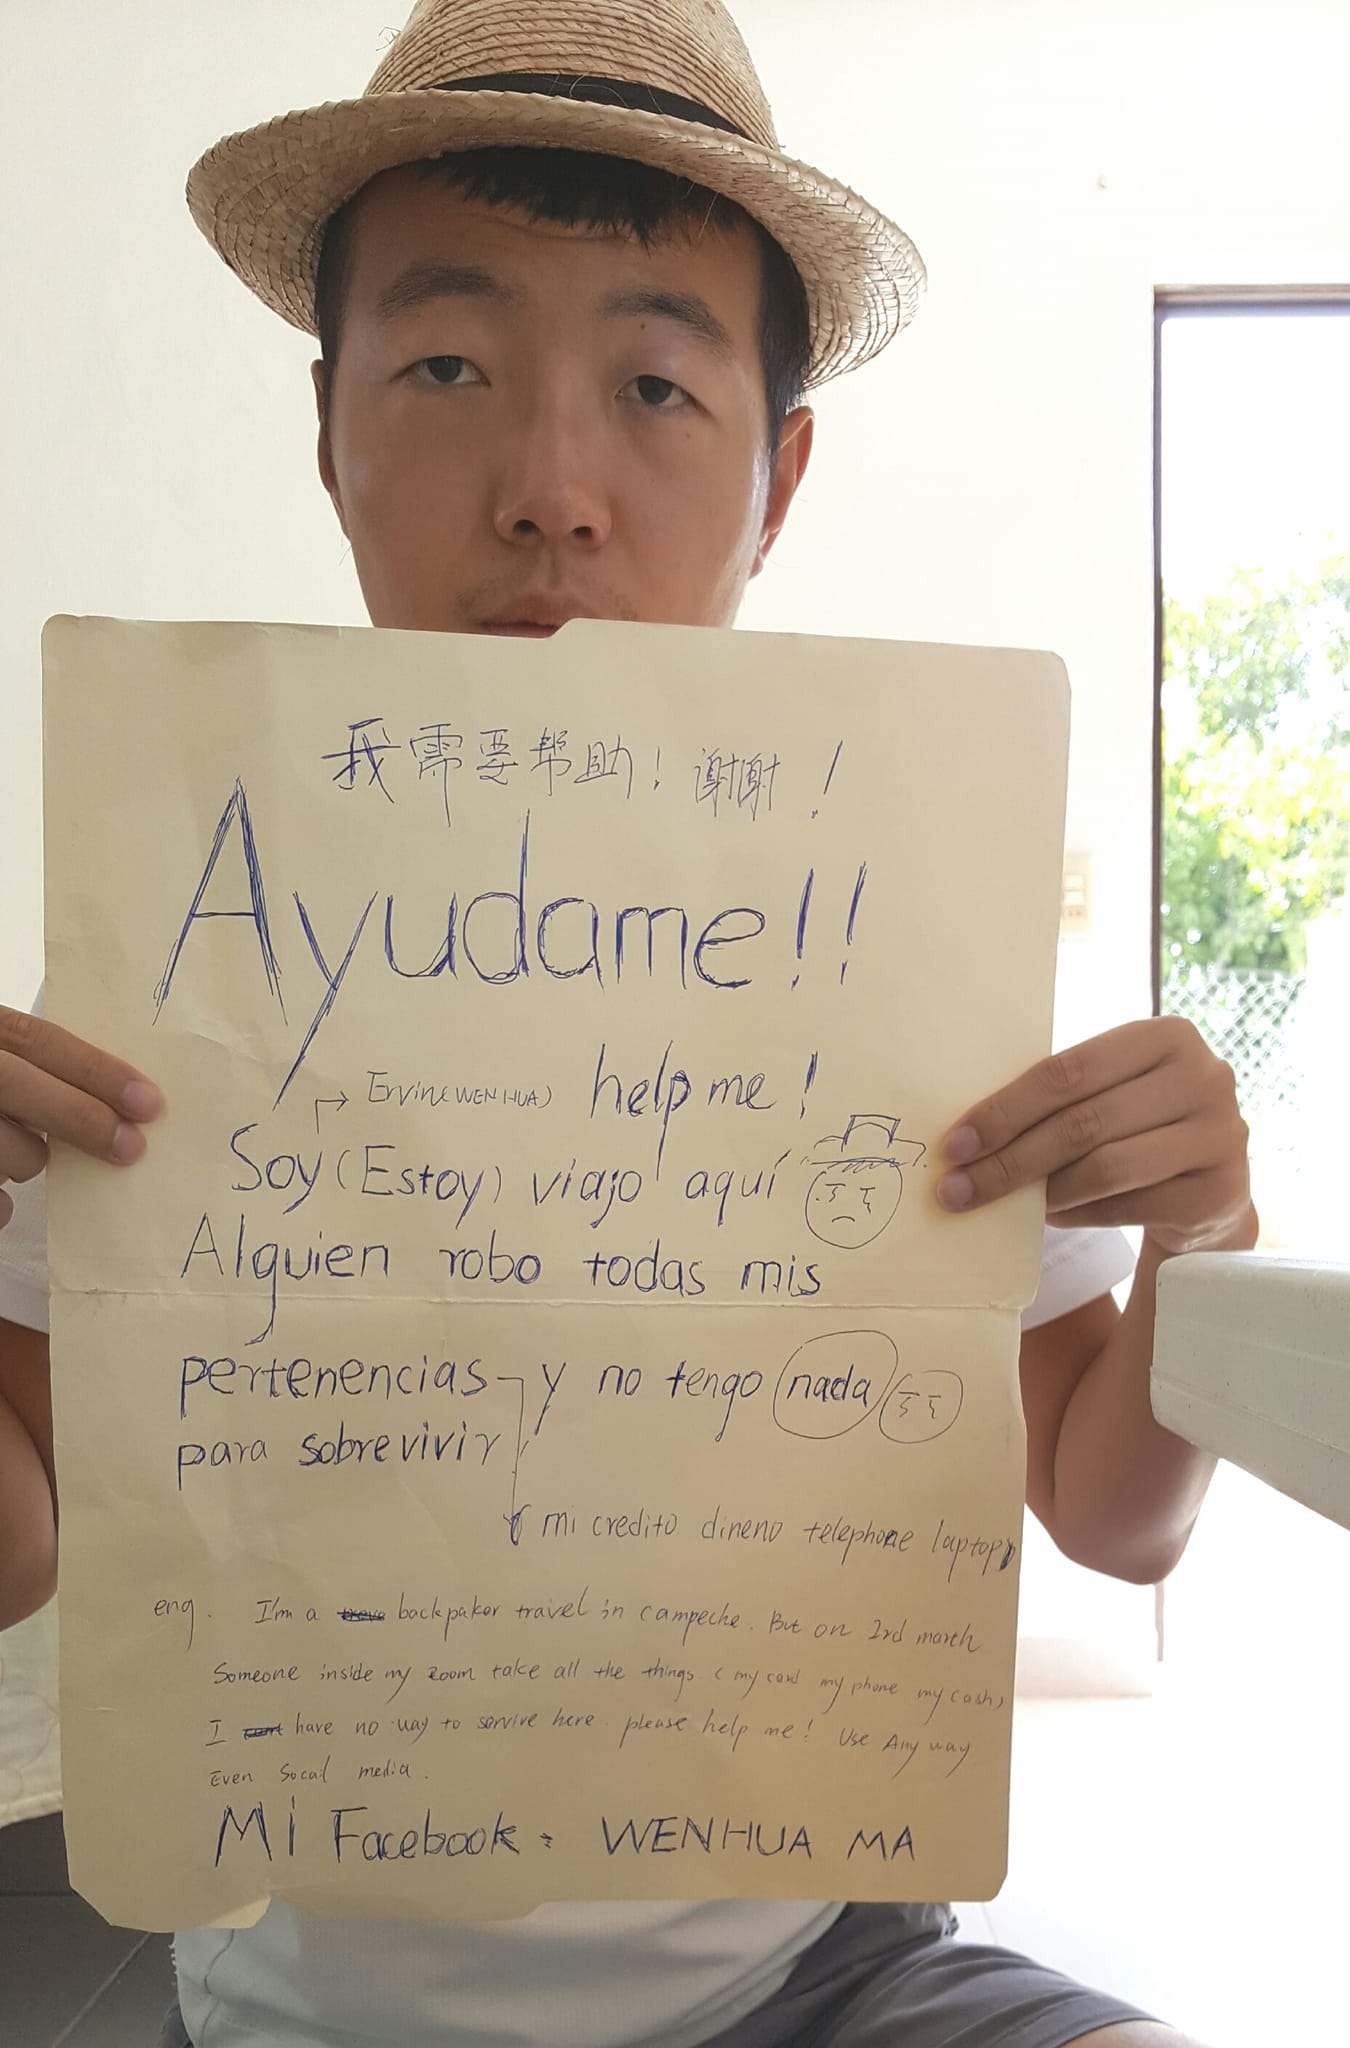 我需要帮助！谢谢！
Ayudame!!
→ Ervin(WENHUA) help me!
Soy (Estoy) viajo aquí
Alguien robo todas mis
pertenencias y no tengo nada
para sobrevivir
mi credito dineno telephone laptop
eng. I'm a backpaker travel in campeche. But on 3rd march
Someone inside my room take all the things (my card my phone my cash)
I have no way to servive here. please help me! Use Any way
Even Socail media.
Mi Facebook: WENHUA MA